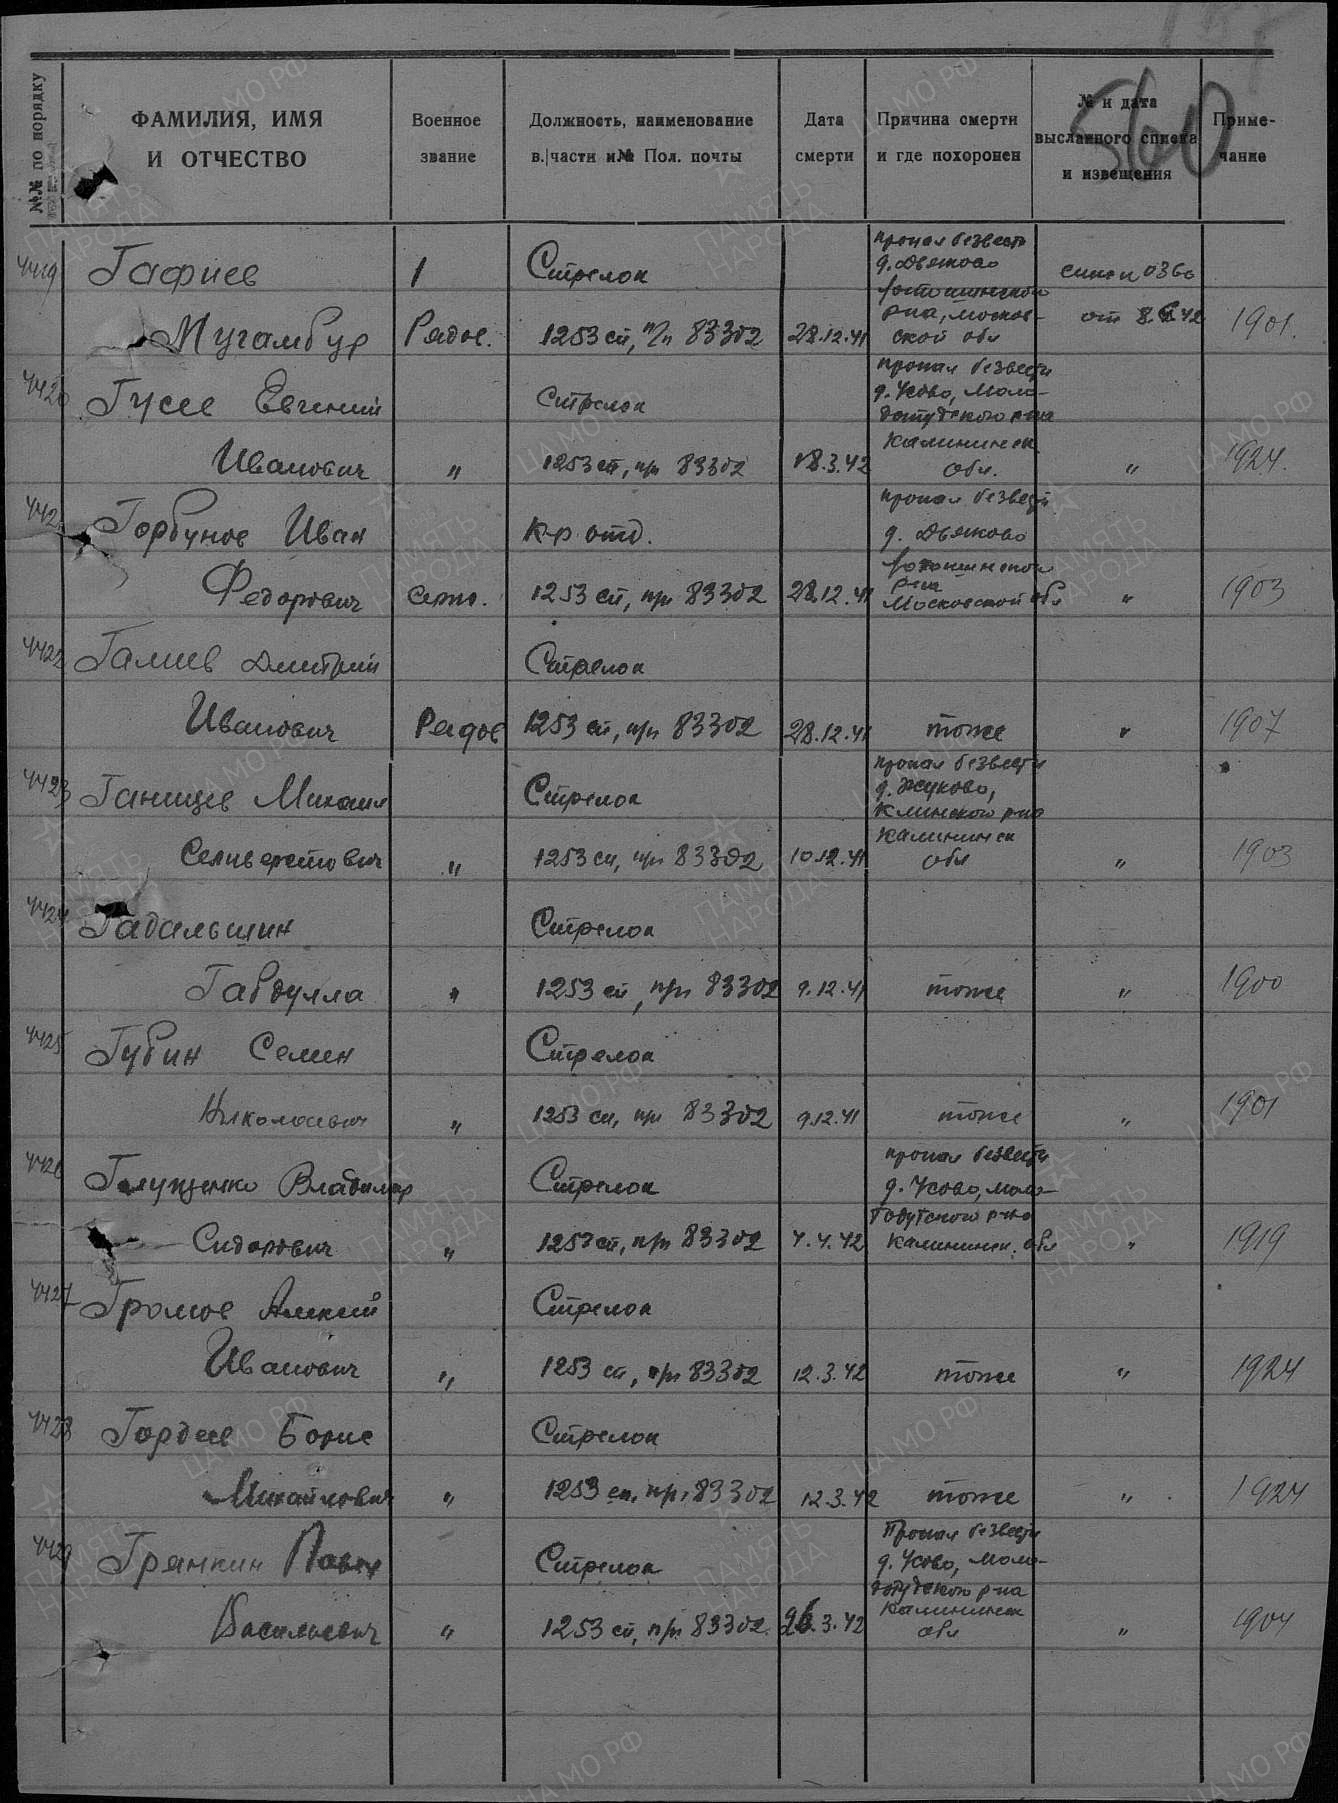 560
№№ по порядку
ФАМИЛИЯ, ИМЯ И ОТЧЕСТВО
Военное звание
Должность, наименование в.|части и № Пол. почты
Дата смерти
Причина смерти и где похоронен
№ и дата высланного списка и извещения
Приме-чание
4419 Гафиев Стрелок
пропал безвести
д. Дьяково
Лотошинского
р-на, Москов-
ской обл
список 0360
Мугамбур Рядов. 1253 сп, п/п 83302 28.12.41 от 8.6.42 1901.
4420 Гусев Евгений Стрелок
пропал безвести
д. Усово, Моло-
дотудского р-на
Калининск.
обл.
Иванович " 1253 сп, пп 83302 18.3.42 " 1924.
Горбунов Иван К-р отд.
пропал безвести
д. Дьяково
Лотошинского
р-на
Московской обл
Федорович серж. 1253 сп, пп 83302 28.12.41 " 1903
4422 Галиев Дмитрий Стрелок
Иванович Рядов 1253 сп, п/п 83302 28.12.41 тоже " 1907
4423 Ганищев Михаил Стрелок
пропал безвести
д. Жуково,
Клинского р-на
Калининск
обл
Селиверстович " 1253 сп, пп 83302 10.12.41 " 1903
4424 Гадальшин Стрелок
Габдулла " 1253 сп, п/п 83302 9.12.41 тоже " 1900
4425 Губин Семен Стрелок
Николаевич " 1253 сп, пп 83302 9.12.41 тоже " 1901
4426 Глущенко Владимир Стрелок
пропал безвести
д. Усово, Моло-
Тодутского р-на
Калининск. обл
Сидорович " 1253 сп, п/п 83302 4.4.42 " 1919
4427 Громов Алексей Стрелок
Иванович " 1253 сп, п/п 83302 12.3.42 тоже " 1924
4428 Гордеев Борис Стрелок
Михайлович " 1253 сп, пп, 83302 12.3.42 тоже " 1924
4429 Грянкин Павел Стрелок
Пропал безвести
д. Усово, Моло-
дотудского р-на
Калининск
обл
Васильевич " 1253 сп, п/п 83302. 26.3.42 " 1904
ПАМЯТЬ НАРОДА
ЦАМО РФ